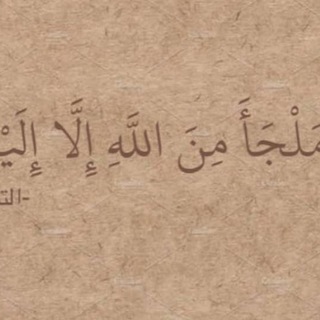 مَلْجَأَ مِنَ اللَّهِ إِلَّا إِلَيْ
-الت